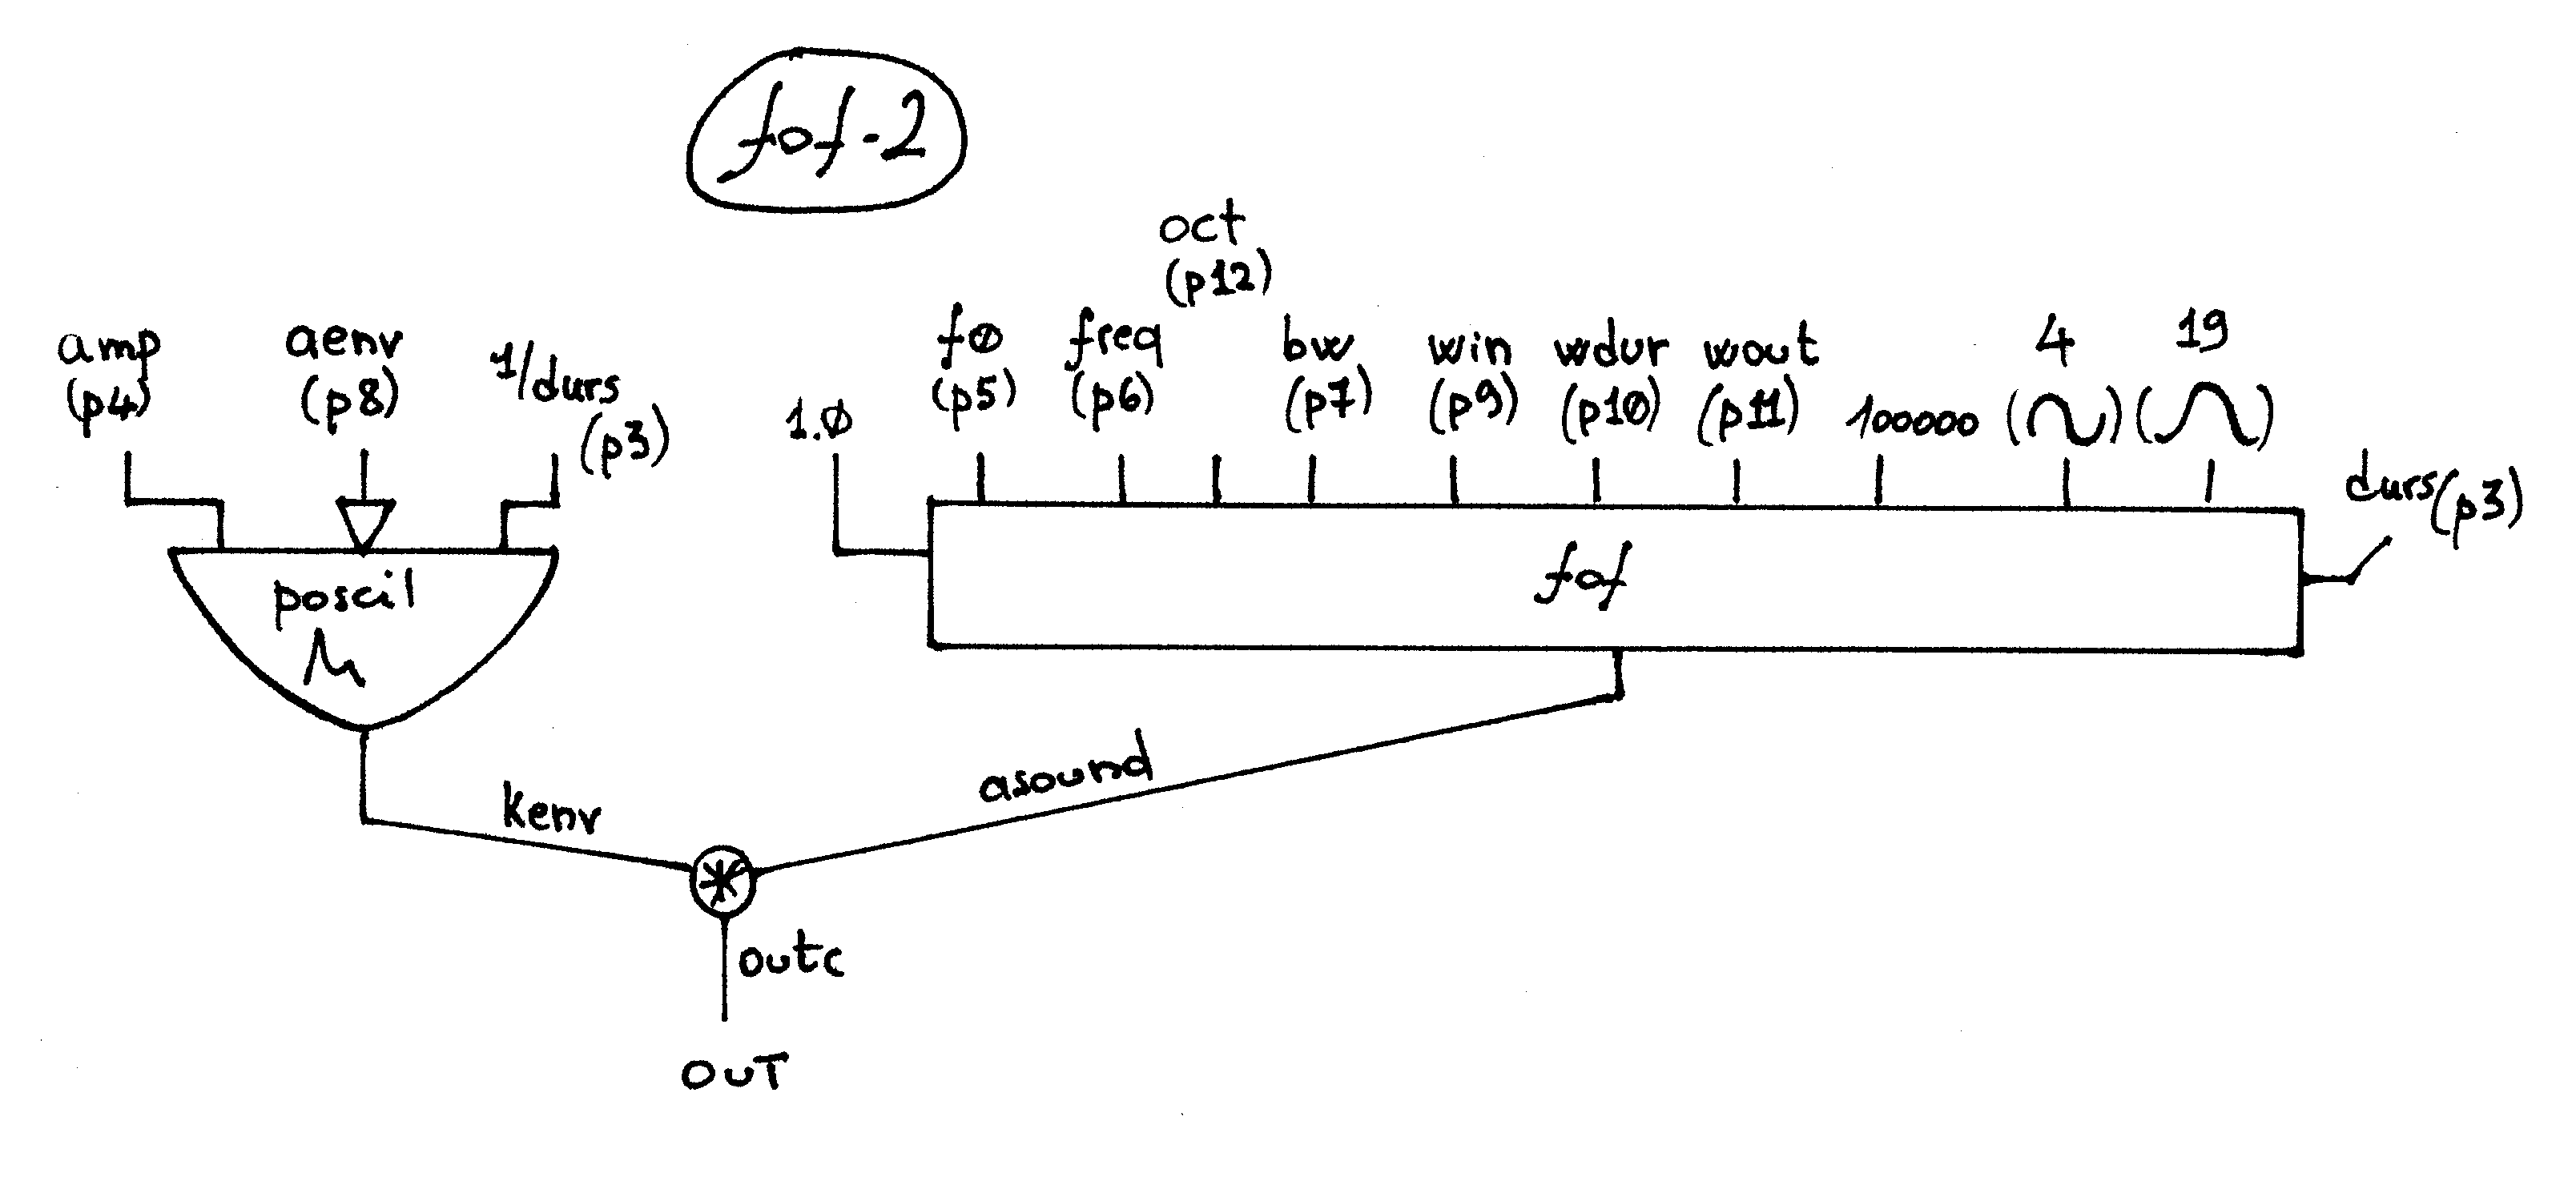 fof-2
amp
(p4)
aenv
(p8)
1/durs
(p3)
1.0
f0
(p5)
freq
(p6)
oct
(p12)
bw
(p7)
win
(p9)
wdur
(p10)
wout
(p11)
100000
4
19
durs(p3)
poscil
fof
kenv
asound
*
outc
OUT